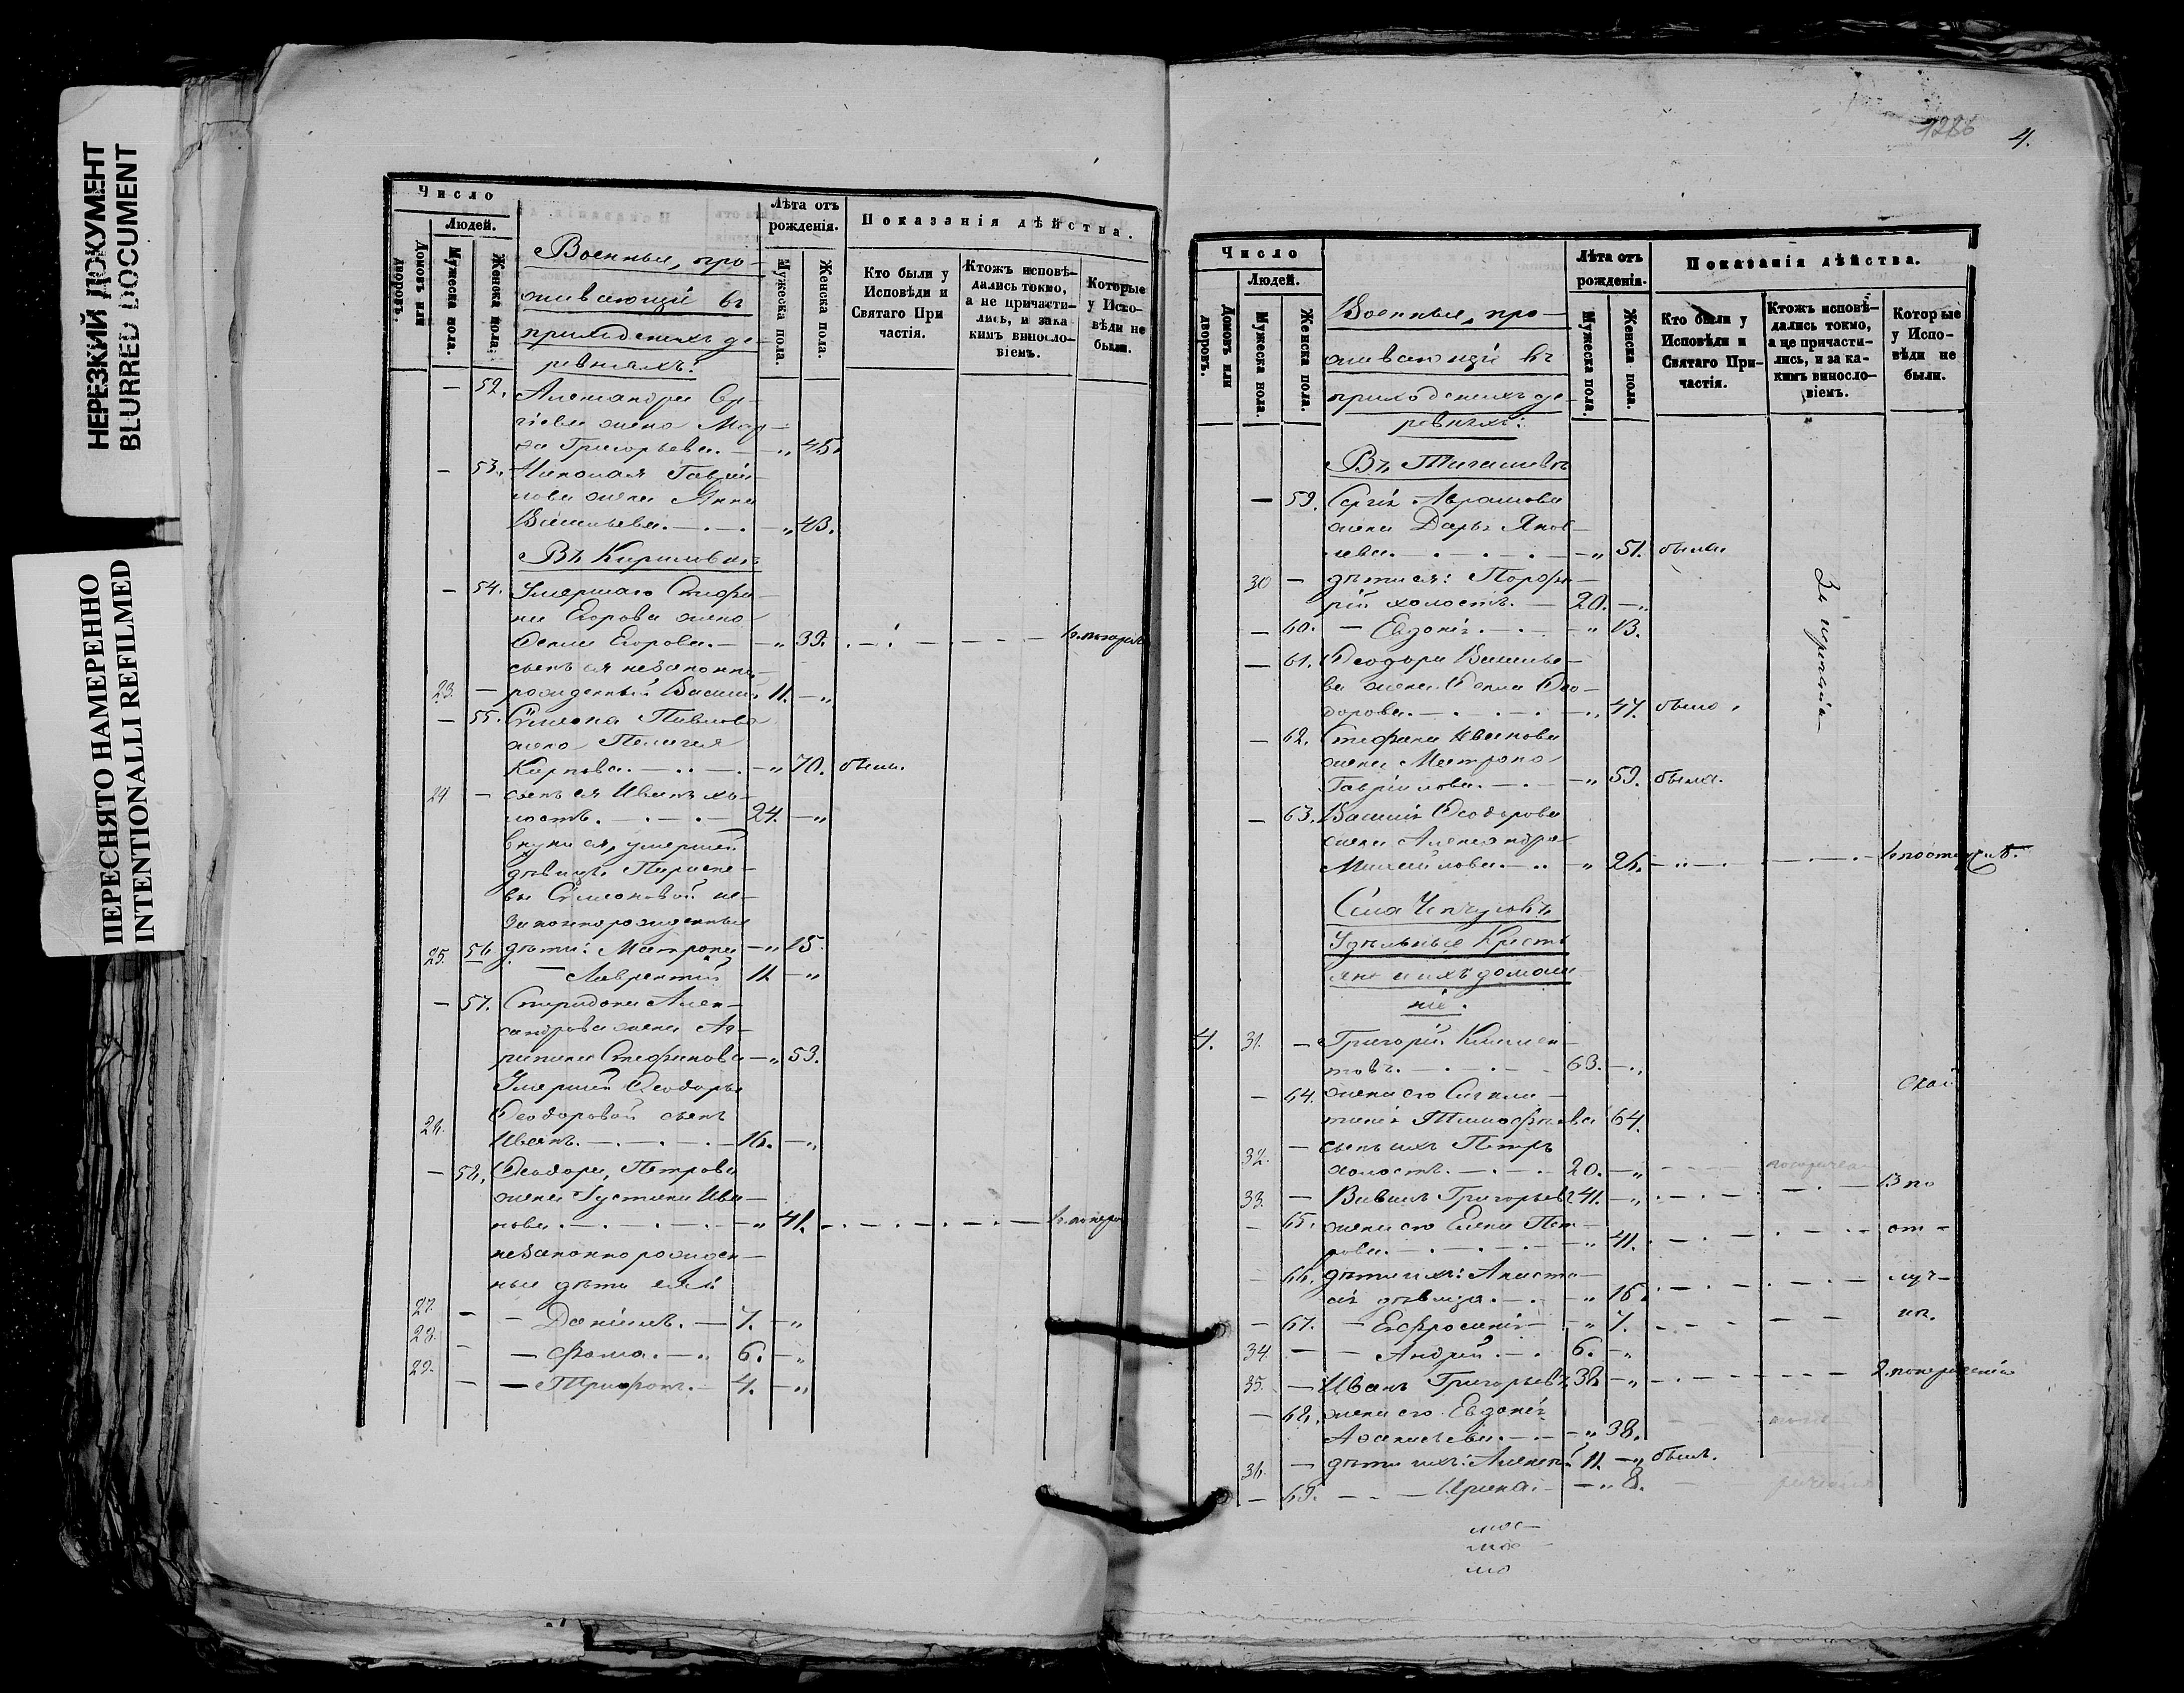 НЕРЕЗКИЙ ДОКУМЕНТ
BLURRED DOCUMENT
ПЕРЕСНЯТО НАМЕРЕННО
INTENTIONALLI REFILMED
Число
Людей.
Домовъ или дворовъ.
Мужеска пола.
Женска пола.
Военныя, про-
живающiя въ
приходскихъ де-
ревняхъ:
Лѣта отъ рожденiя.
Мужеска пола.
Женска пола.
Показанiя дѣйства.
Кто были у Исповѣди и Святаго При частiя.
Ктожъ исповѣ-дались токмо, а не причасти-лись, и зака кимъ винosло-вiемъ.
Которые у Испо-вѣди не были.
— 52. Александра Сер-
гiева жена Мар-
ѳа Григорьева. — „ 45.
— 53. Николая Гаврiи-
лова жена Анна
Васильева. — „ 43.
Въ Кириловкѣ
— 54. Умершаго Стефа-
на Егорова жена
Ѳекла Егорова. — „ 39.
сынъ ея незаконно-
23. — рожденный Василiй 11. — „
— 55. Сѵмеона Павлова
жена Пелагея
Карпова. — „ 70. была.
24 — сынъ ея Иванъ хо-
лостъ. 24. — „
внуки ея, умершей
дѣвицы Параске-
вы Сѵмеоновой не-
законнорожденные
56. дѣти: Матрона — „ 15.
25. — Лаврентiй 11. — „
— 57. Спиридона Алек-
сандрова жена Аг-
рипина Стефанова — „ 53.
Умершей Ѳеодоры
Ѳеодоровой сынъ
26. Иванъ. — 16. — „
— 58. Ѳеодора Петрова
жена Iустина Ива-
нова. — „ 41.
незаконнорожден-
ные дѣти ея:
27. — Данiилъ. — 7. — „
28. — Ѳома. — 6. — „
29. — Трифонъ. — 4. — „
1286
4.
Число
Людей.
Домовъ или дворовъ.
Мужеска пола.
Женска пола.
Военныя, про-
живающiя въ
приходскихъ де-
ревняхъ:
Лѣта отъ рожденiя.
Мужеска пола.
Женска пола.
Показанiя дѣйства.
Кто были у Исповѣди и Святаго При-частiя.
Ктожъ исповѣ-дались токмо, а не причасти-лись, и за ка-кимъ винocло-вiемъ.
Которые у Испо-вѣди не были.
— 59. Сергiя Аврамова
жена Дарья Яков-
лева. — „ 51. была
30 — дѣти ея: Порфи-
рiй холостъ. — 20. — „
— 60. — Евдокiя. — „ 13.
— 61. Ѳеодора Василье-
ва жена Ѳекла Ѳео-
дорова. — „ 47. была.
— 62. Стефана Иванова
жена Матрона
Гаврiилова. — „ 59. была.
— 63. Василiя Ѳеодорова
жена Александра
Михайлова. — „ 26.
Села Чепчуговъ
Удѣльные Кресть
яне и ихъ домаш-
нiе.
4. 31. — Григорiй Климен-
товъ. 63. — „
— 64. жена его
Тимоѳеева 64.
32. — сынъ ихъ Петръ
холостъ. — 20. — „
33. — Григорьевъ 41. — „
— 65. жена его Елена Пет-
рова. — „ 41.
— 66. дѣти ихъ: Анаста-
сiя дѣвица. — „ 16.
— 67. — Евфросинiя — „ 7.
34. — Андрей. — 6. — „
35. — Иванъ Григорьевъ 38 — „
— 68. жена его Евдокiя
Аѳанасьева. — „ 38.
36. — дѣти ихъ: Алексѣй 11. — „ былъ.
— 69. — Ирина. — „ 8.
От-
луч-